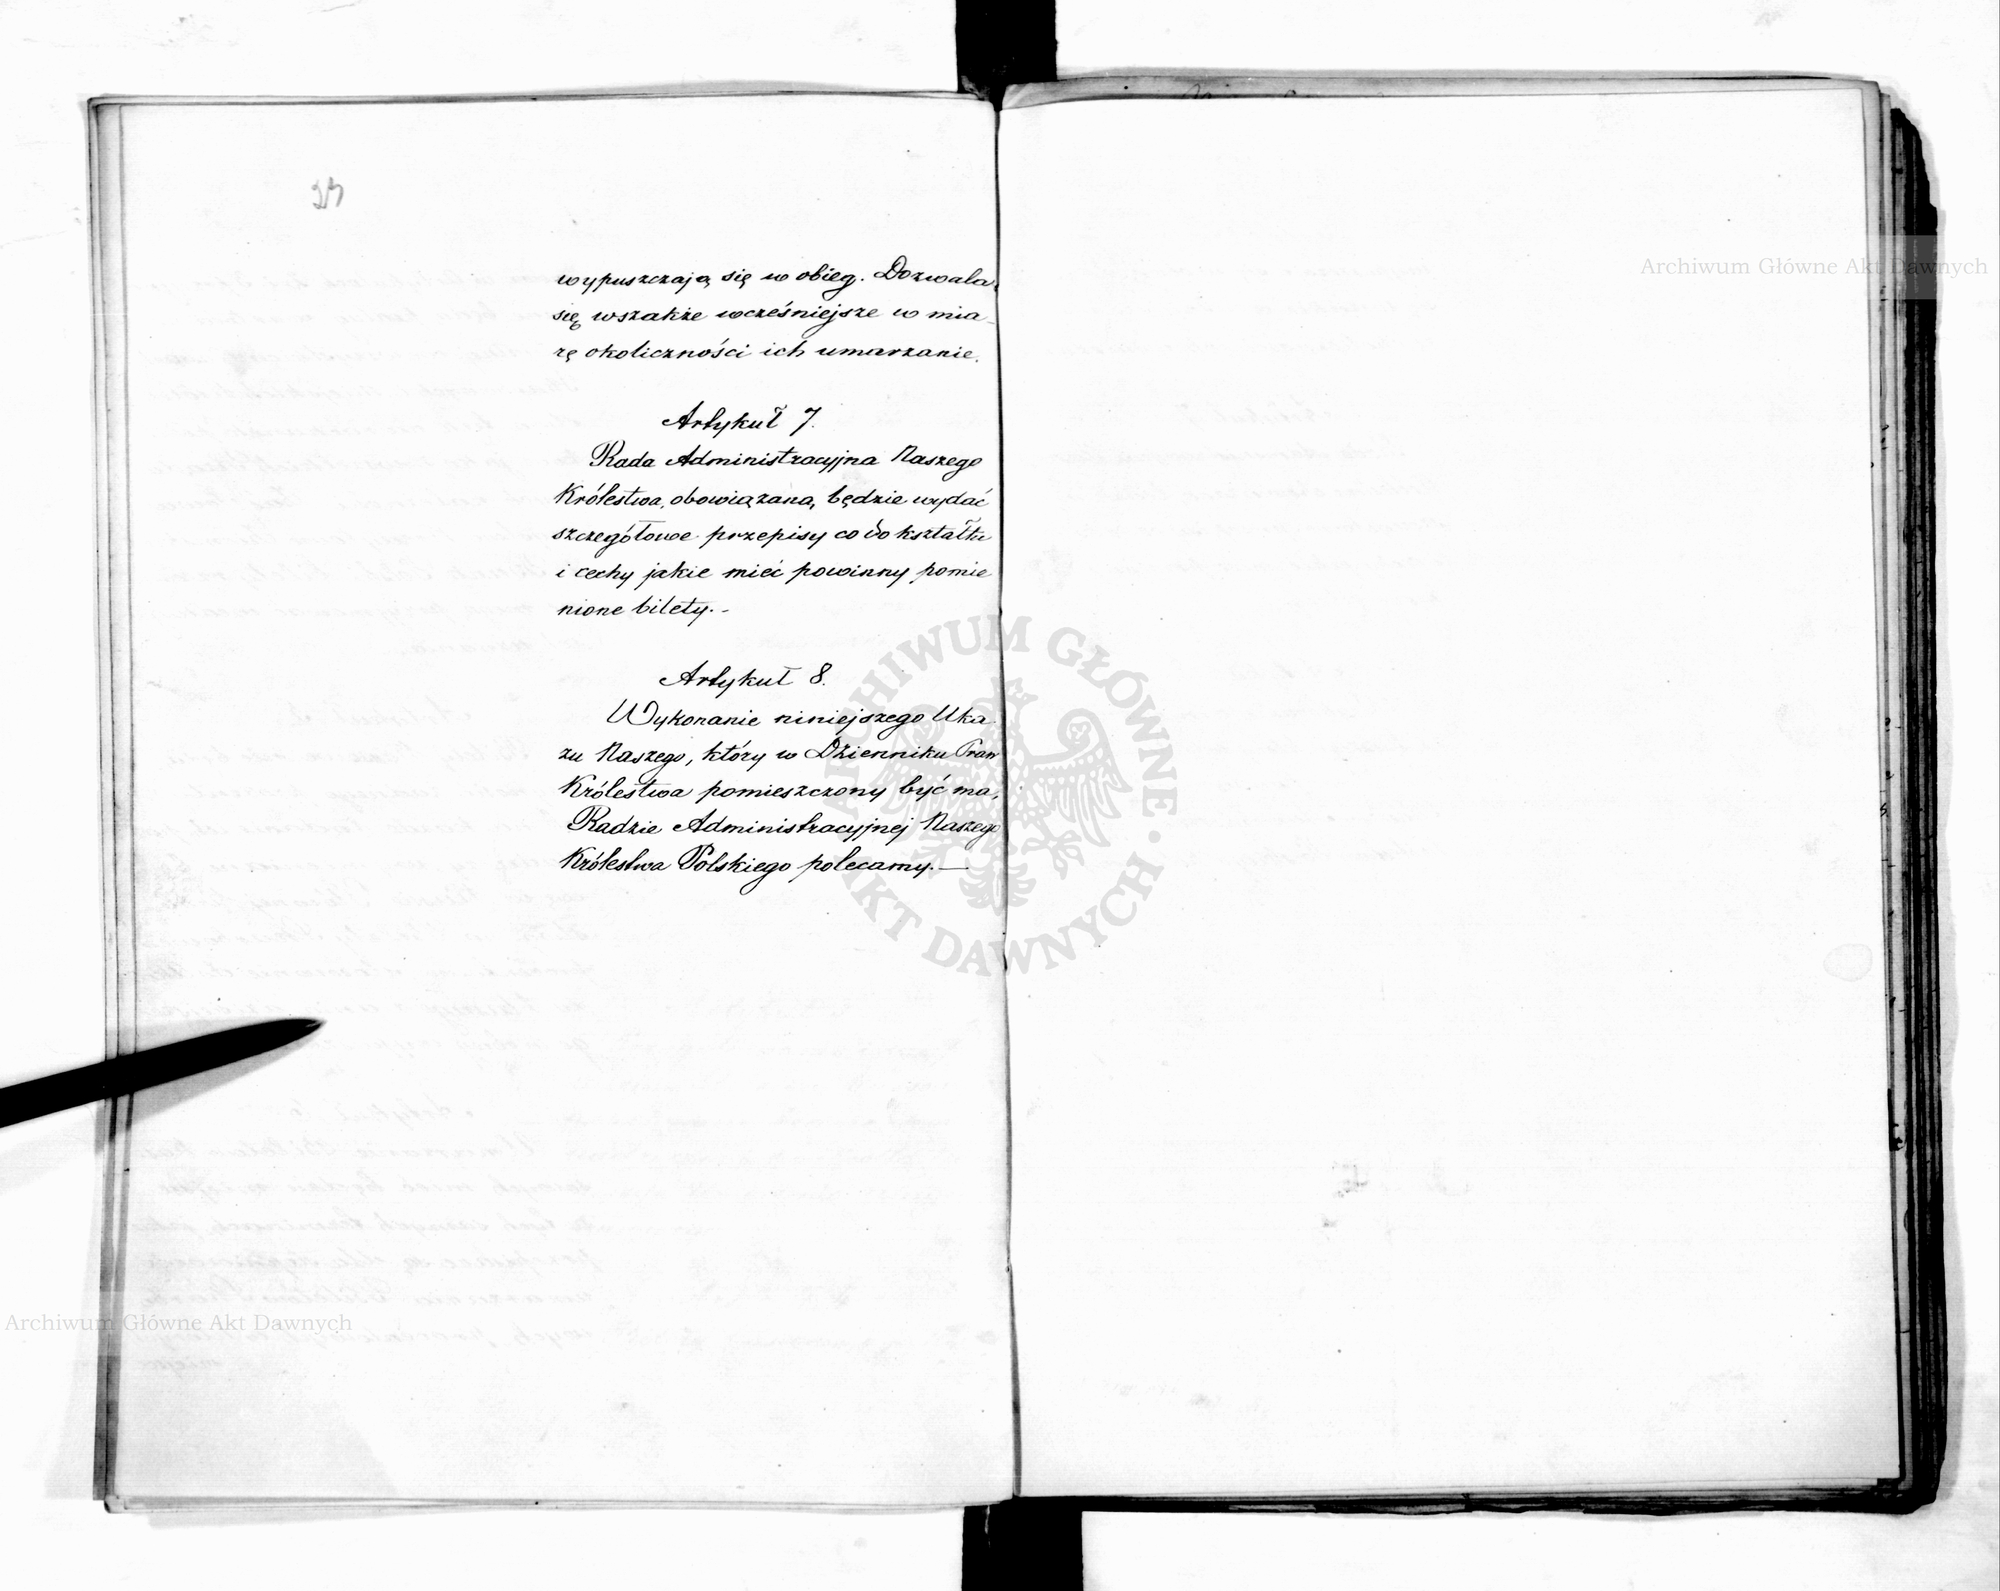 wypuszczają się w obieg. Dozwala
się wszakże wcześniejsze w mia-
rę okoliczności ich umarzanie.
Artykuł 7.
Rada Administracyjna Naszego
Królestwa, obowiązaną będzie wydać
szczegółowe przepisy co do kształtu
i cechy jakie mieć powinny pomie
nione bilety.-
Artykuł 8.
Wykonanie niniejszego Uka
zu Naszego, który w Dzienniku Praw
Królestwa pomieszczony być ma,
Radzie Administracyjnej Naszego
Królestwa Polskiego polecamy.—
Archiwum Główne Akt Dawnych
ARCHIWUM GŁÓWNE AKT DAWNYCH
Archiwum Główne Akt Dawnych